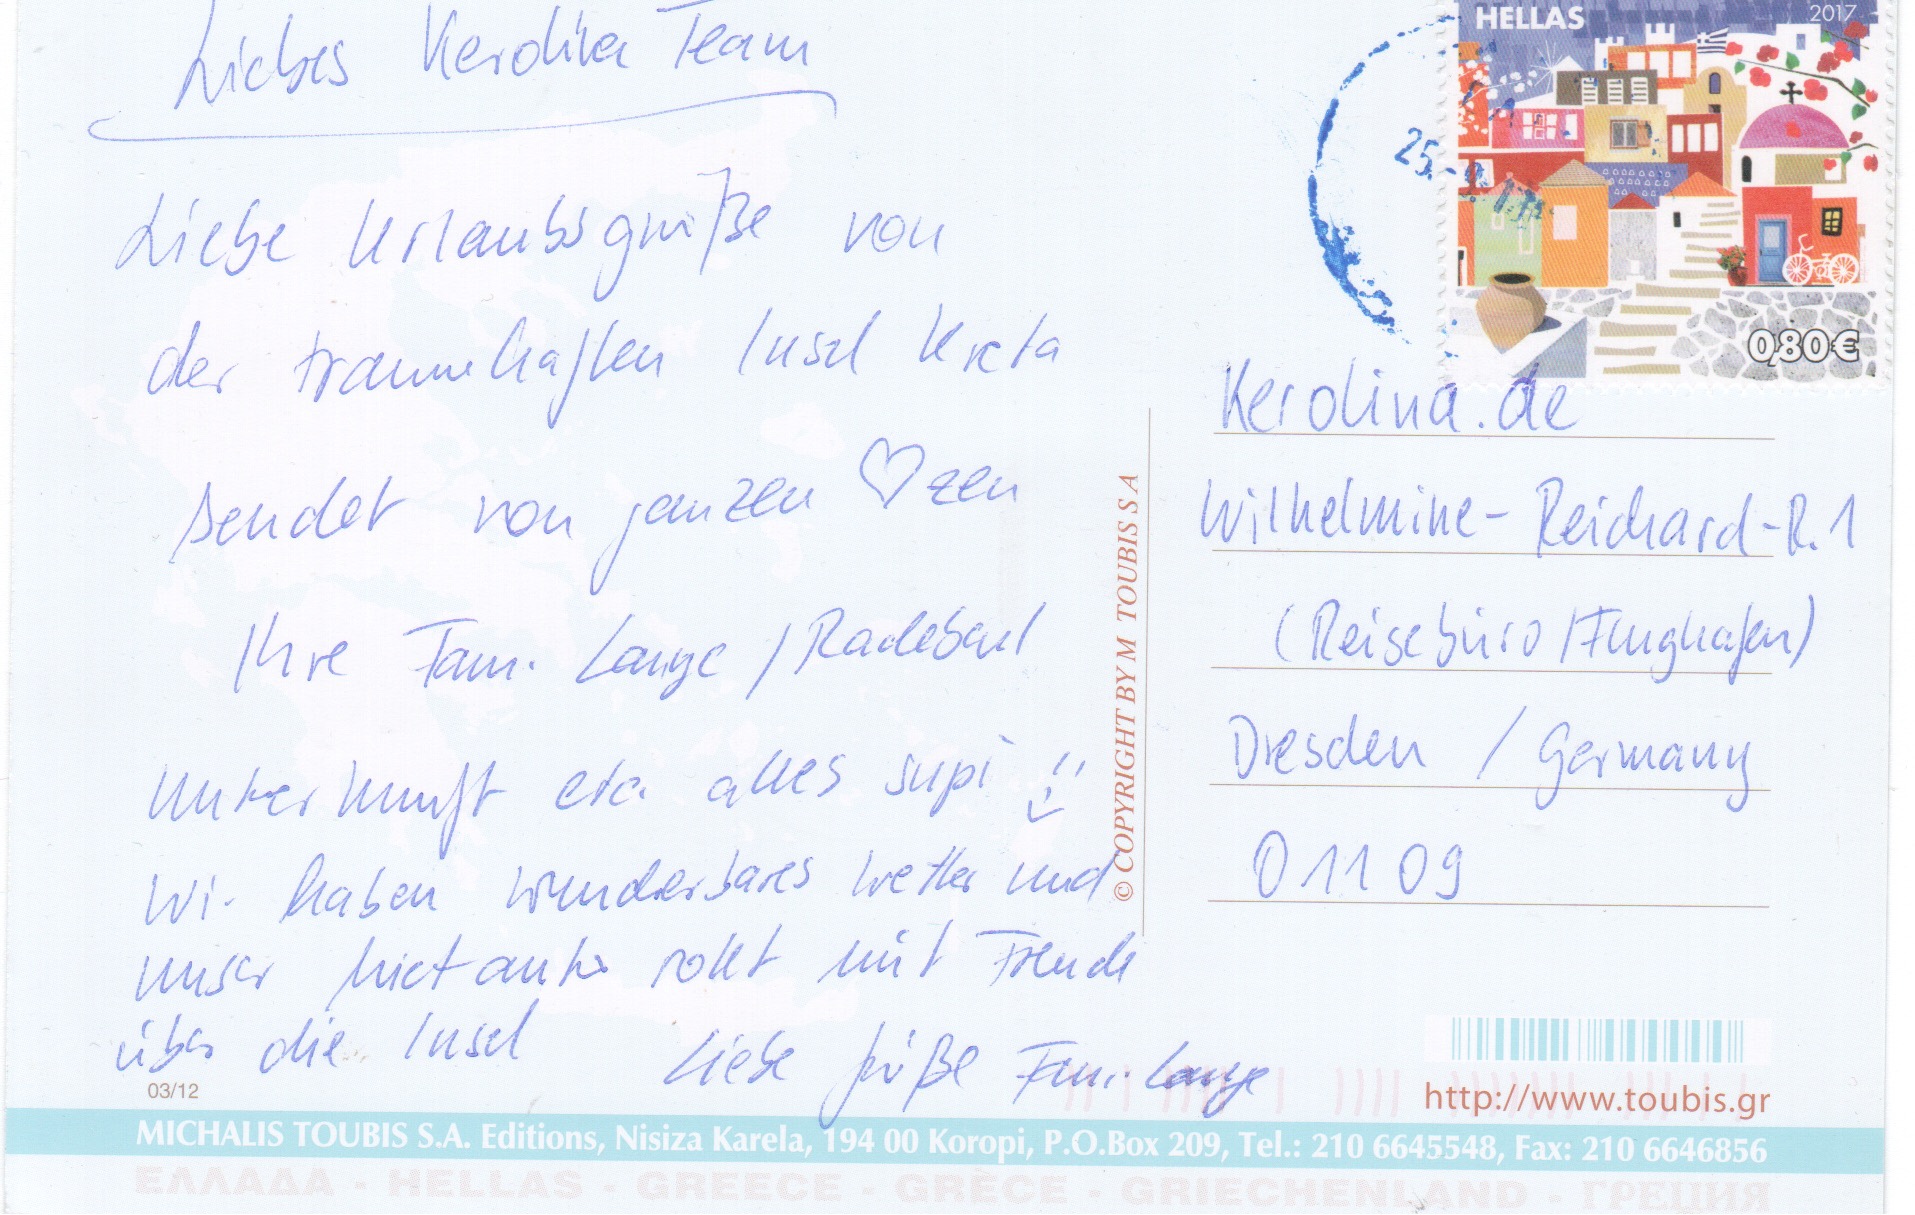 Liebes Kerolina Team
Liebe Urlaubsgrüße von
der traumhaften Insel Kreta
sendet von ganzen ♡zen
Ihre Fam. Lange / Radebeul
Unterkunft etc. alles supi
Wir haben wunderbares Wetter und
unser Mietauto rollt mit Freude
über die Insel
Liebe Grüße Fam. Lange
03/12
© COPYRIGHT BY M TOUBIS S A
HELLAS 2017
0,80€
25.
Kerolina.de
Wilhelmine-Reichard-R.1
(Reisebüro/Flughafen)
Dresden / Germany
01109
http://www.toubis.gr
MICHALIS TOUBIS S.A. Editions, Nisiza Karela, 194 00 Koropi, P.O.Box 209, Tel.: 210 6645548, Fax: 210 6646856
ΕΛΛΑΔΑ - HELLAS - GREECE - GRÈCE - GRIECHENLAND - ГРЕЦИЯ